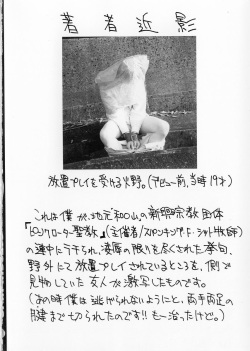 著者近影
放置プレイを受ける火野。(デビュー前、当時19才)
これは僕が、地元和〇山の新興宗教団体
聖教』(主催者/スタンキング・F・シャト牧師)
の連中にラチられ、凌辱の限りを尽くされた挙句、
野外にて放置プレイされているところを、側で
見物していた友人が激写したものです。
(あの時僕は逃げられないようにと、両手両足の
腱まで切られたのです!!もー治ったけど。)